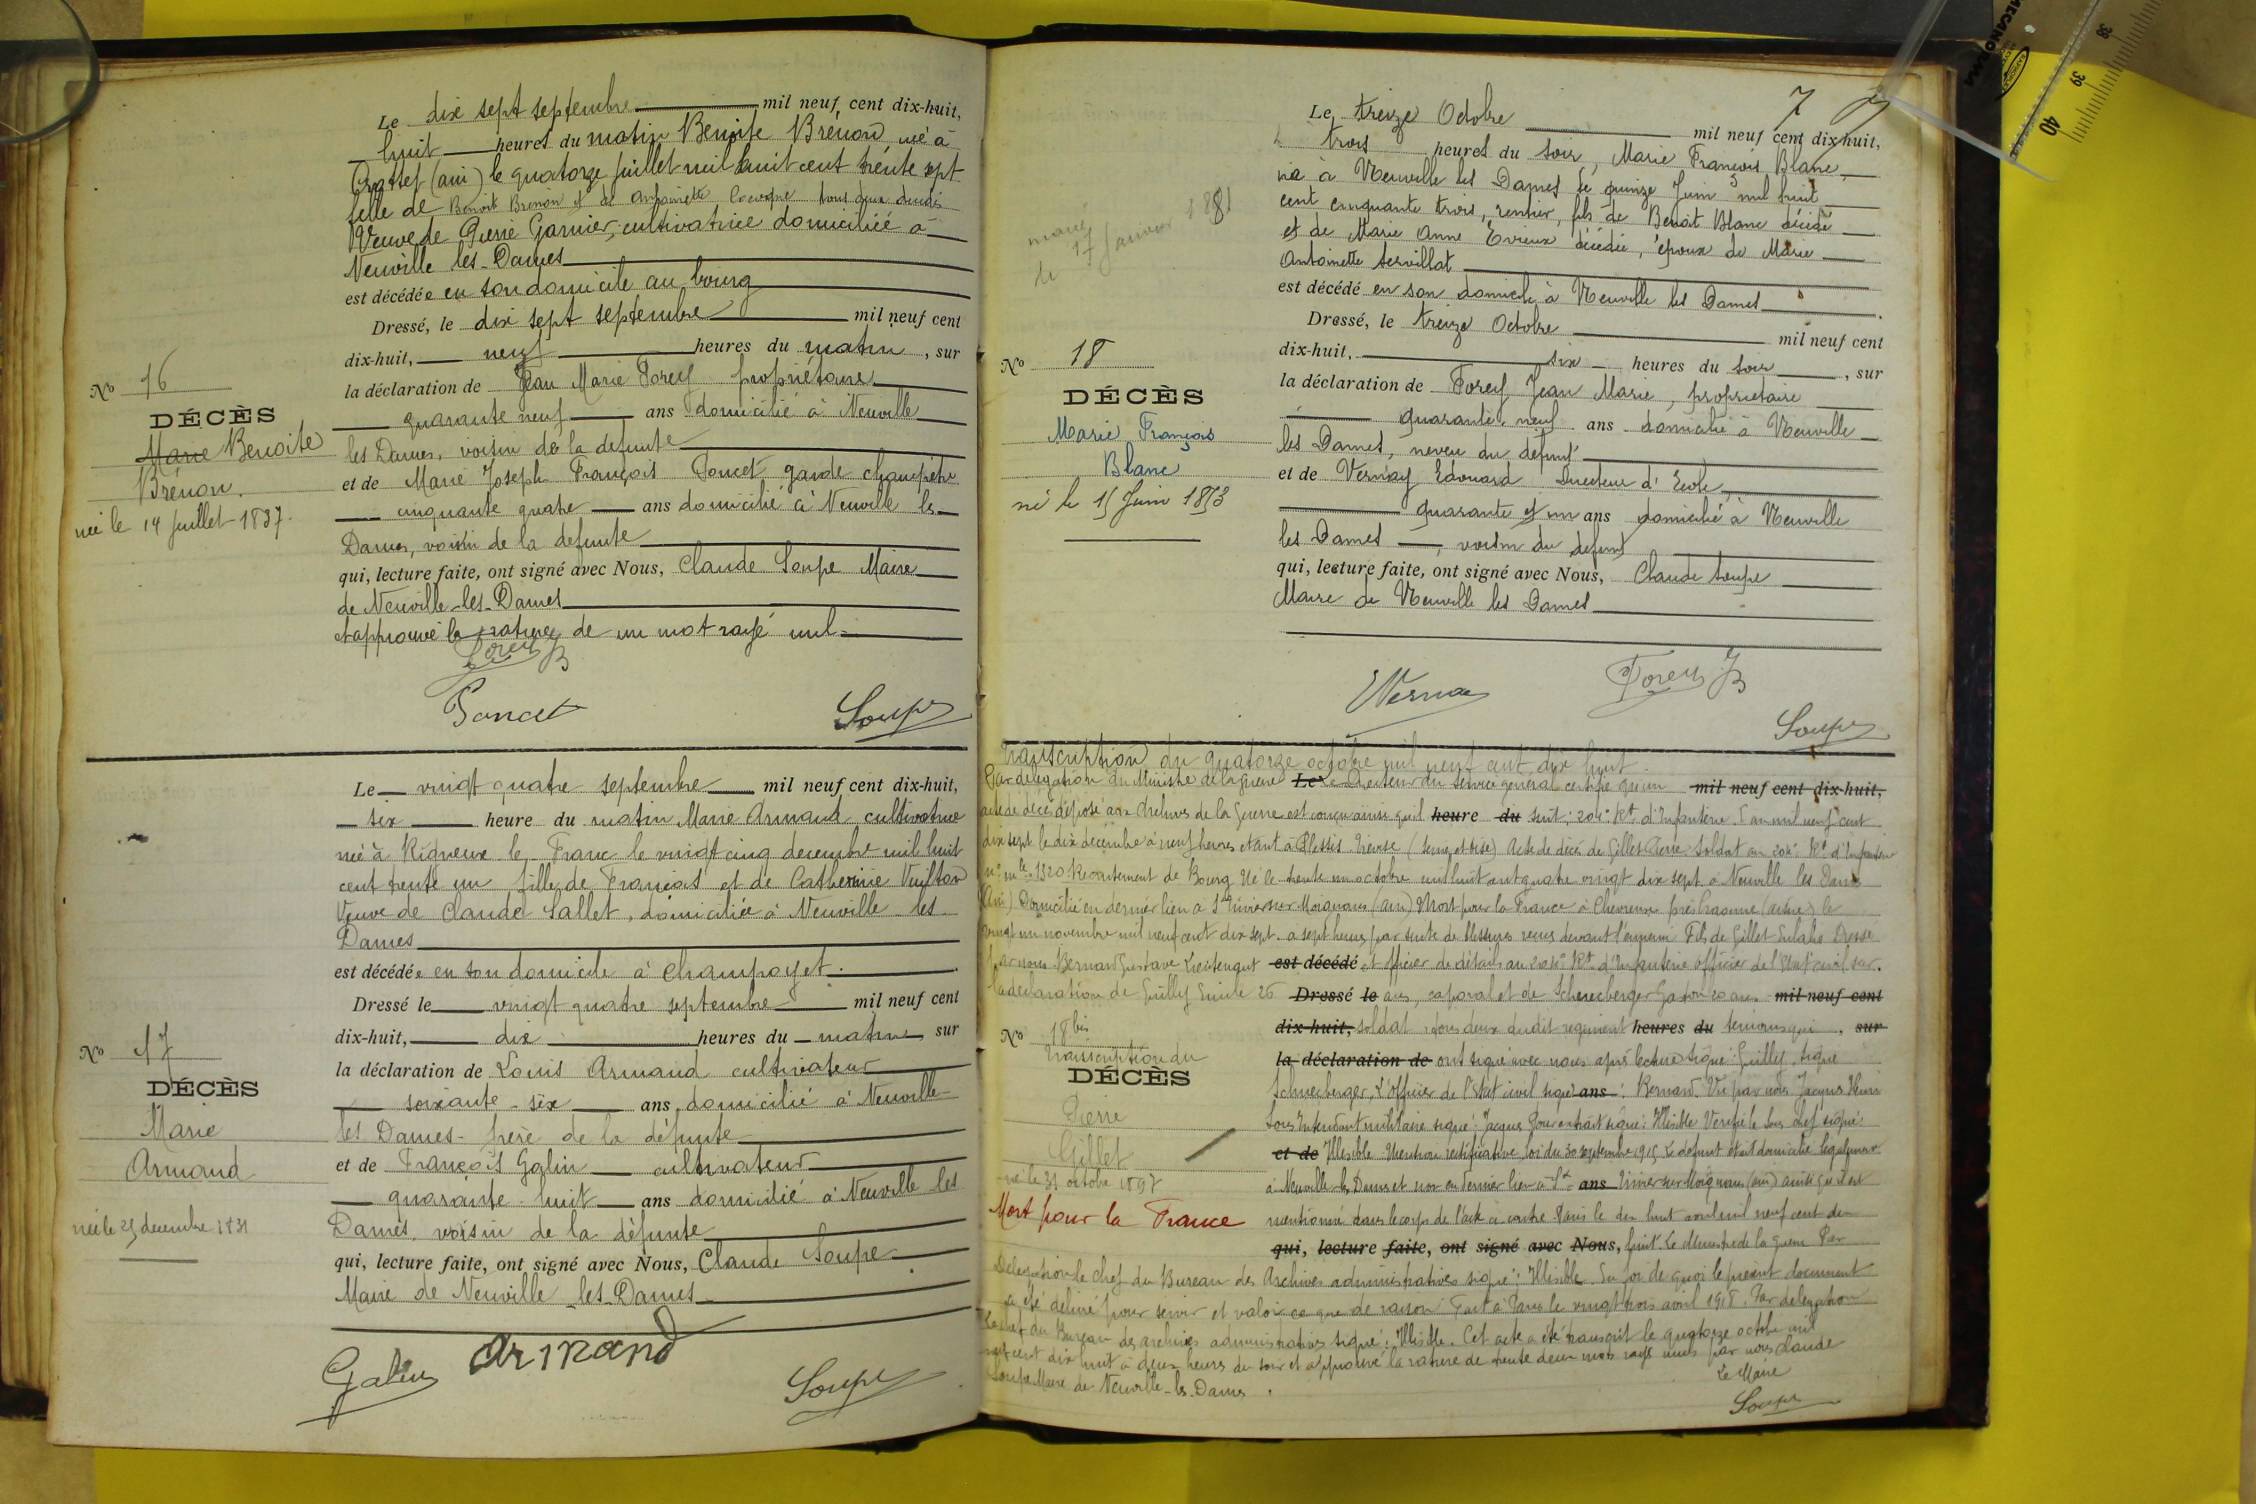 Le dix sept septembre mil neuf cent dix-huit,
huit heures du matin Benoite Brénon né à
le quatorze juillet mil huit cent trente sept
fille de Benoit Brénon et de Antoinette tous deux
Veuve de Pierre Garnier, cultivatrice domiciliée à
Neuville les-Dames
est décédée en son domicile au bourg
Dressé, le dix sept septembre mil neuf cent
dix-huit, neuf heures du matin, sur
la déclaration de Jean Marie Forey propriétaire
quarante neuf ans domicilié à Neuville
les Dames, voisin de la défunte
et de Marie Joseph François Poncet garde champêtre
cinquante quatre ans domicilié à Neuville les
Dames, voisin de la défunte
qui, lecture faite, ont signé avec Nous, Claude Soupe Maire
de Neuville-les-Dames
et approuvé la rature de un mot rayé nul
Forey
Poncet
Soupe
No 16
DÉCÈS
Marie Benoite
Brénon.
née le 14 juillet 1837.
Le vingt quatre septembre mil neuf cent dix-huit,
six heure du matin Marie Armand cultivatrice
née à Rigneux le Franc le vingt cinq decembre mil huit
cent trente un fille de François et de Catherine
Veuve de Claude Sallet, domiciliée à Neuville les
Dames
est décédée en son domicile à Champoyet.
Dressé le vingt quatre septembre mil neuf cent
dix-huit, dix heures du matin sur
la déclaration de Louis Armand cultivateur
soixante-six ans, domicilié à Neuville
les Dames - frère de la défunte
et de François Galin cultivateur
quarante-huit ans domicilié à Neuville les
Dames, voisin de la défunte
qui, lecture faite, ont signé avec Nous, Claude Soupe
Maire de Neuville-les-Dames
Galin Armand
Soupe
No 17
DÉCÈS
Marie
Armand
née le 25 decembre 1831
7
Le treize Octobre mil neuf cent dix-huit,
trois heures du soir, Marie François Blanc,
né à Neuville les Dames le quinze Juin mil huit
cent cinquante trois, rentier, fils de Benoit Blanc décédé
et de Marie Anne Evieux décédée, époux de Marie
Antoinette Servillat
est décédé en son domicile à Neuville les Dames
Dressé, le treize Octobre mil neuf cent
dix-huit, six heures du soir, sur
la déclaration de Forey Jean Marie, propriétaire
quarante neuf ans domicilié à Neuville
les Dames, neveu du défunt
et de Vernay Edouard Directeur d'Ecole
quarante et un ans domicilié à Neuville
les Dames, voisin du défunt
qui, lecture faite, ont signé avec Nous, Claude Soupe
Maire de Neuville les Dames
Vernay
Forey
Soupe
marié
le 17 Janvier 1881
No 18
DÉCÈS
Marie François
Blanc
né le 15 Juin 1853
Transcription du quatorze octobre mil neuf cent dix huit.
Par délégation du Ministre de la Guerre Le Le Directeur du Service général certifie qu'un mil neuf cent dix-huit,
acte de décès déposé aux Archives de la Guerre est conçu ainsi qu'il heure du suit: 204e Rt d'Infanterie. L'an mil neuf cent
dix sept le dix décembre à neuf heures étant à Plessis Trévise (Seine et Oise) Acte de décès de Gillet Pierre Soldat au 204e Rt d'Infanterie
no mle 1320 Recrutement de Bourg Né le trente un octobre mil huit cent quatre vingt dix sept à Neuville les Dames
(Ain) Domicilié en dernier lieu à St Trivier sur Moignans (ain) Mort pour la France à Chevreux près Craonne (aisne) le
vingt un novembre mil neuf cent dix sept à sept heures par suite de blessures reçues devant l'ennemi Fils de Gillet Dressé
par nous Bernard Gustave Lieutenant est décédé et officier de détails au 204e Rt d'Infanterie officier de l'Etat civil sur
la déclaration de Guilly Emile 26 Dressé le ans, caporal et de Schneeberger Gaston 20 ans mil neuf cent
dix-huit, soldat tous deux dudit régiment heures du témoins qui, sur
la déclaration de ont signé avec nous après lecture Signé: Guilly, signé
Schneeberger, L'officier de l'Etat civil signé ans: Bernard. Vu par nous Jacques Henri
Sous Intendant militaire signé: Jacques Pour extrait signé: Illisible Vérifié le Sous chef signé:
et de Illisible Mention rectificative loi du 30 septembre 1915 Le défunt était domicilié légalement
à Neuville les Dames et non en dernier lieu à St ans Trivier sur Moignans (ain) ainsi qu'il est
mentionné dans le corps de l'acte ci contre Paris le dix huit avril mil neuf cent dix
qui, lecture faite, ont signé avec Nous, huit. Le Ministre de la Guerre Par
Délégation le chef du Bureau des Archives administratives signé: Illisible. En foi de quoi le présent document
a été délivré pour servir et valoir ce que de raison Fait à Paris le vingt trois avril 1918. Par délégation
Le chef du Bureau des archives administratives signé: Illisible. Cet acte a été transcrit le quatorze octobre mil
neuf cent dix huit à deux heures du soir et approuvé la rature de trente deux mots rayés nuls par nous Claude
Soupe Maire de Neuville-les-Dames.
Le Maire
Soupe
No 18 bis
Transcription du
DÉCÈS
Pierre
Gillet
né le 31 octobre 1897
Mort pour la France
38
39
40